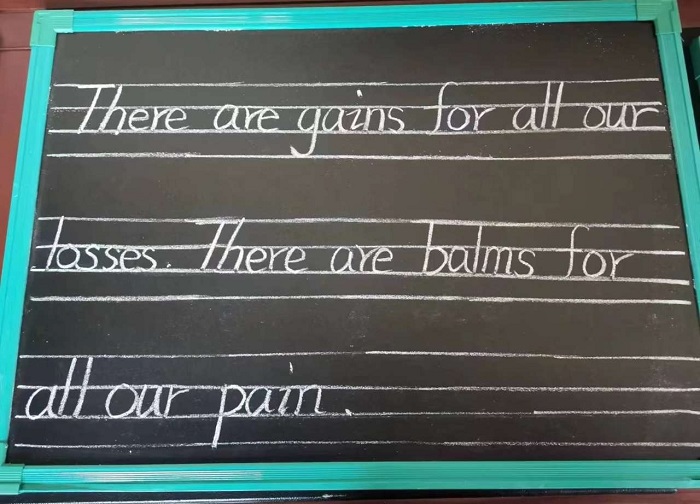 There are gains for all our
losses. There are balms for
all our pain.